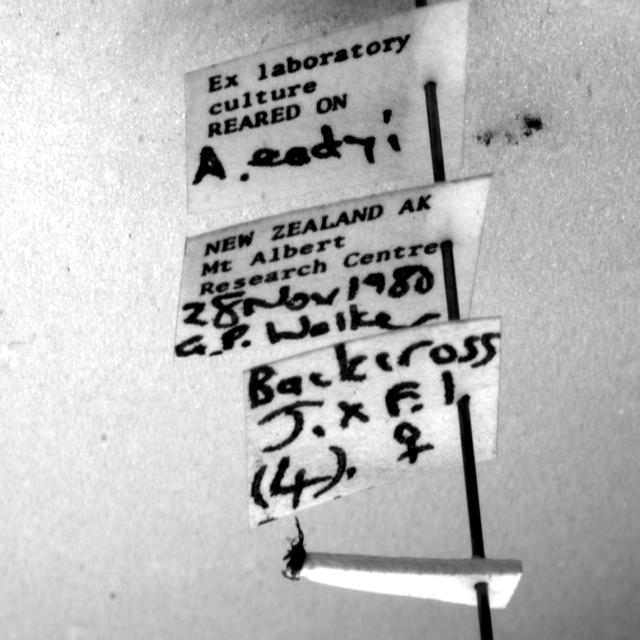 Ex laboratory
culture
REARED ON
A. eadyi
NEW ZEALAND AK
Mt Albert
Research Centre
28 Nov 1980
G.P. Walker
Backcross
J. x F. 1
(4). ♀